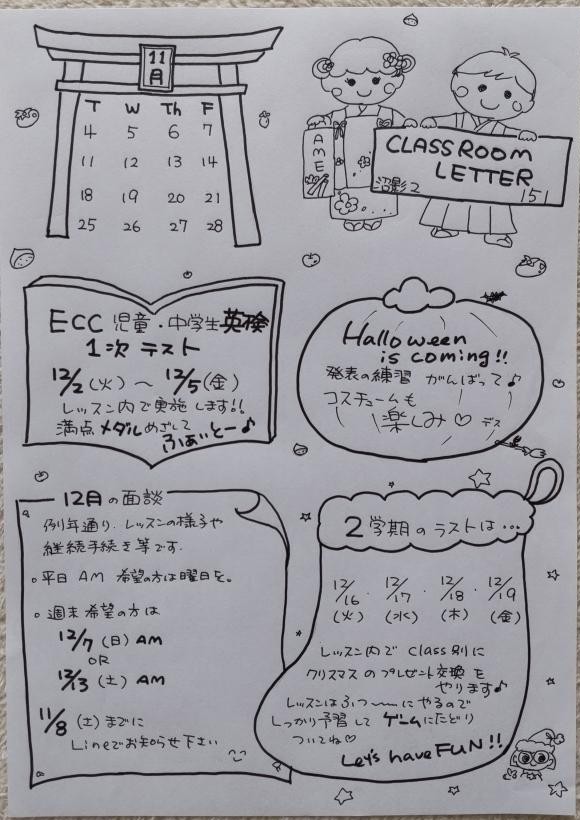 11
月
T W Th F
4 5 6 7
11 12 13 14
18 19 20 21
25 26 27 28
AME
CLASSROOM
LETTER
沼影2 151
ECC 児童・中学生英検
1次テスト
12/2(火)～12/5(金)
レッスン内で実施します!!
満点メダルめざして
ふぁいとー♪
Halloween
is coming!!
発表の練習 がんばって♪
コスチュームも
楽しみ♡デス
12月の面談
例年通り、レッスンの様子や
継続手続き等です.
。平日 AM 希望の方は曜日を。
。週末希望の方は
12/7(日)AM
OR
12/13(土)AM
11/8(土)までに
Lineでお知らせ下さい
2学期のラストは...
12/16・12/17・12/18・12/19
(火) (水) (木) (金)
レッスン内で class別に
クリスマスのプレゼント交換を
やります♪
レッスンはふつ〜〜にやるので
しっかり予習して ゲームにたどり
ついてね♡
Let's have FUN!!